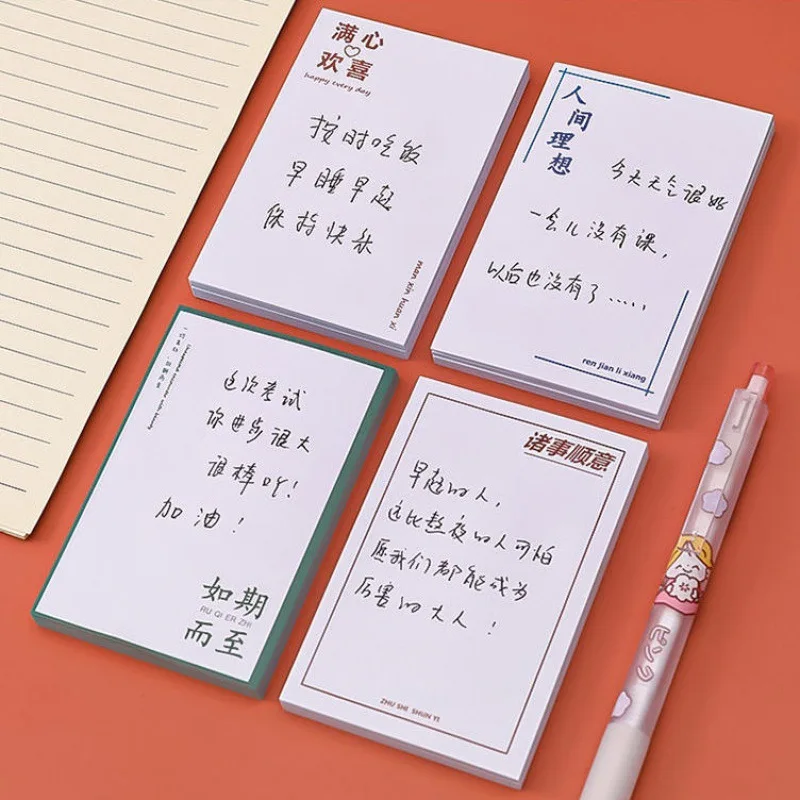 满心
欢喜
happy every day
按时吃饭
早睡早起
保持快乐
man xin huan xi
人间理想
今天天气很好
一会儿没有课，
以后也没有了……
ren jian li xiang
这次考试
你进步很大
很棒吖！
加油！
如期
RU QI ER ZHI
而至
诸事顺意
早起的人，
远比熬夜的人可怕
愿我们都能成为
厉害的大人！
ZHU SHI SHUN YI
ピンク